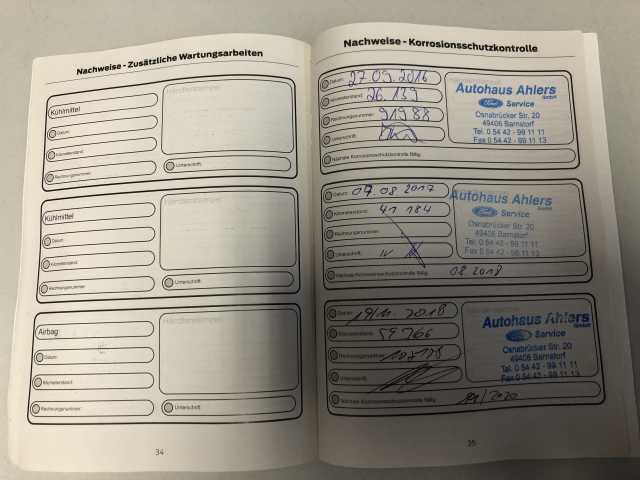 Nachweise - Zusätzliche Wartungsarbeiten
Kühlmittel
Händlerstempel
Datum:
Kilometerstand:
Rechnungsnummer:
Unterschrift:
Kühlmittel
Händlerstempel
Datum:
Kilometerstand:
Rechnungsnummer:
Unterschrift:
Airbag
Händlerstempel
Datum:
Kilometerstand:
Rechnungsnummer:
Unterschrift:
34
Nachweise - Korrosionsschutzkontrolle
Datum: 27.09.2016
Kilometerstand: 26.139
Rechnungsnummer: 91988
Unterschrift:
Nächste Korrosionsschutzkontrolle fällig:
Autohaus Ahlers
GmbH
Ford Service
Osnabrücker Str. 20
49406 Barnstorf
Tel. 0 54 42 - 99 11 11
Fax 0 54 42 - 99 11 13
Datum: 07.08.2017
Kilometerstand: 41 184
Rechnungsnummer:
Unterschrift:
Nächste Korrosionsschutzkontrolle fällig: 08.2018
Autohaus Ahlers
GmbH
Ford Service
Osnabrücker Str. 20
49406 Barnstorf
Tel. 0 54 42 - 99 11 11
Fax 0 54 42 - 99 11 13
Datum: 19/11.2018
Kilometerstand: 59766
Rechnungsnummer:
Unterschrift:
Nächste Korrosionsschutzkontrolle fällig: 11/2020
Autohaus Ahlers
GmbH
Ford Service
Osnabrücker Str. 20
49406 Barnstorf
Tel. 0 54 42 - 99 11 11
Fax 0 54 42 - 99 11 13
35